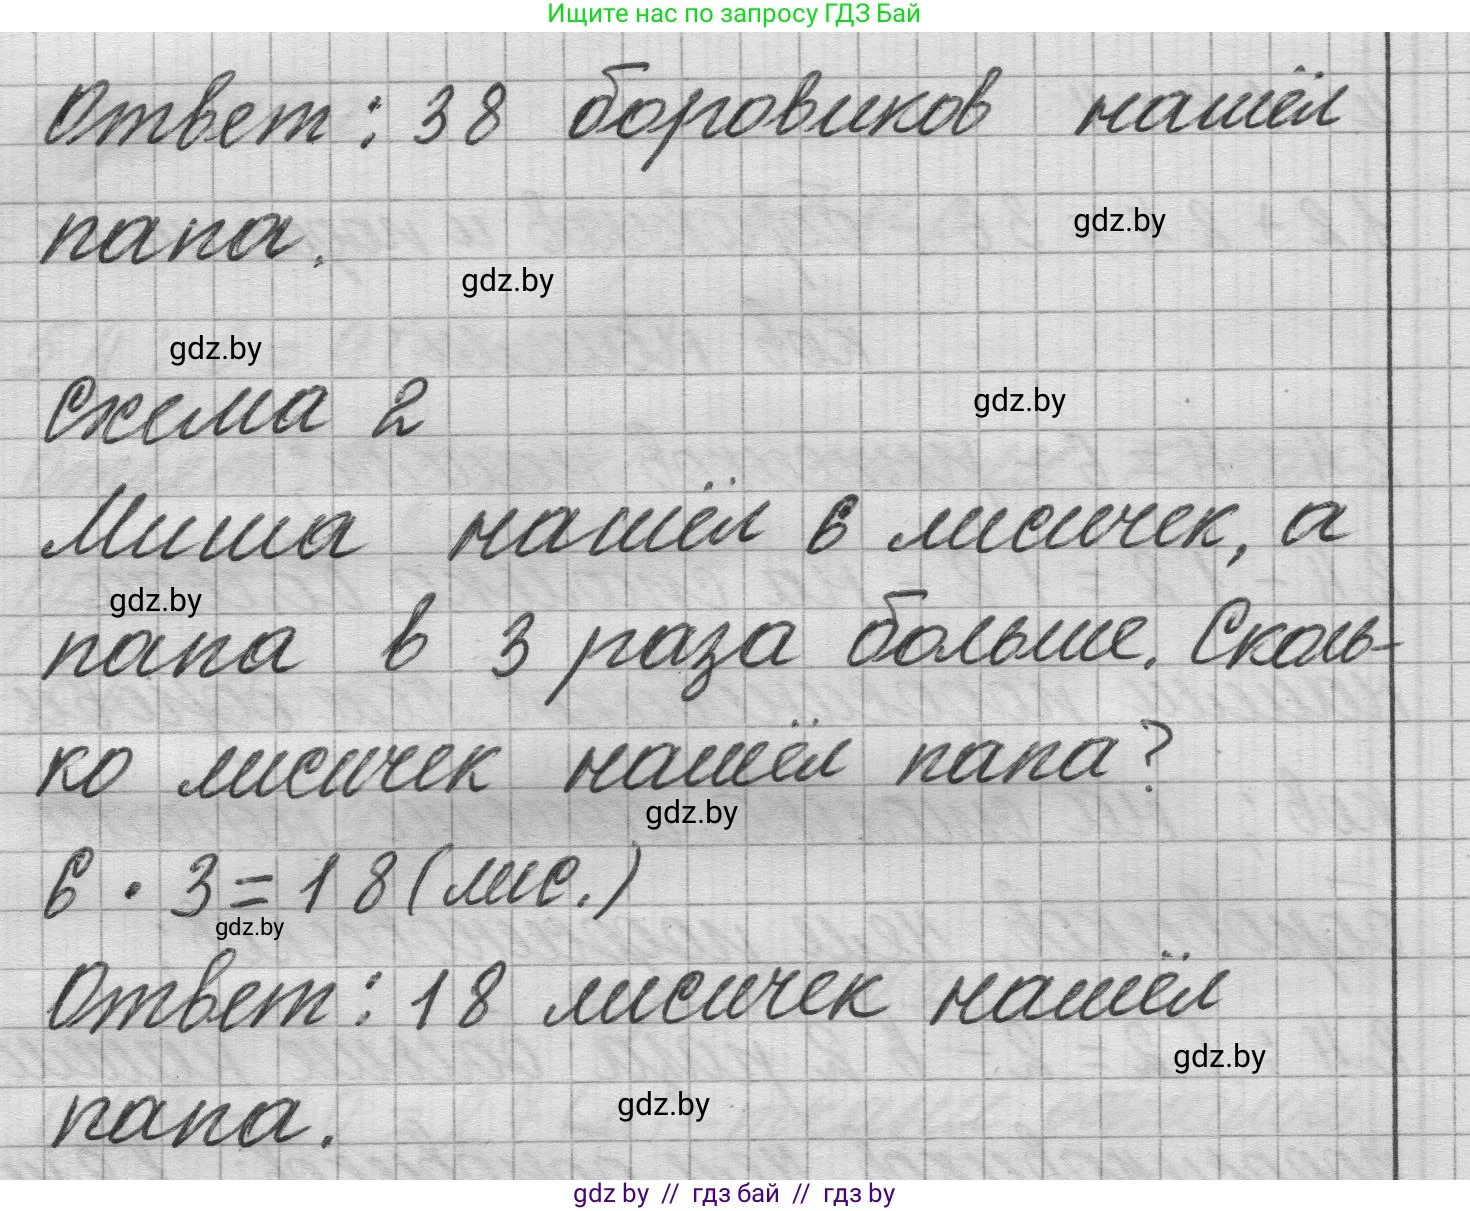 Ищите нас по запросу ГДЗ Бай
Ответ: 38 боровиков нашёл
папа.
gdz.by
gdz.by
gdz.by
Схема 2
gdz.by
Миша нашёл 6 лисичек, а
gdz.by
папа в 3 раза больше. Сколь-
ко лисичек нашёл папа?
gdz.by
6 · 3 = 18 (лис.)
gdz.by
Ответ: 18 лисичек нашёл
gdz.by
папа.
gdz.by
gdz by // гдз бай // гдз by